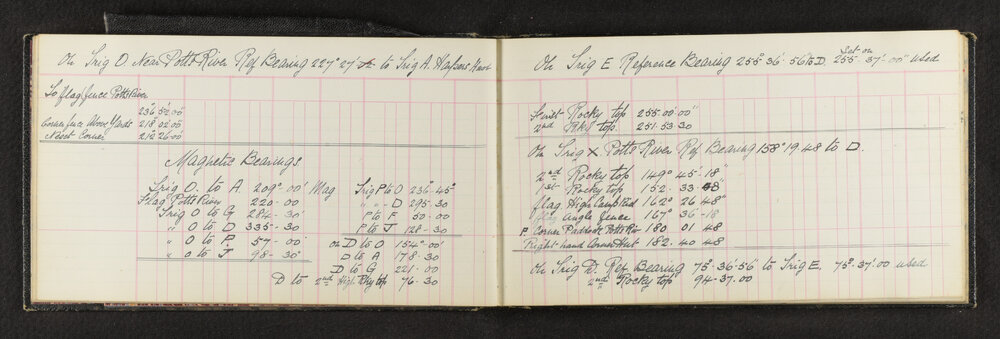 On Trig O. Near Potts River Ref Bearing 227° 27' to Trig A. Harpers
To flag fence Potts River
236° 52' 00"
Corner fence Above Yards 218 02 00
Nearest Corner 212 26 00
Magnetic Bearings
Trig O. to A. 209° 00' Mag
Flag Potts River 220. 00
Trig O to G 284 - 30'
" O to D 335 - 30
" O to P. 57 - 00
" O to J 98 - 30'
Trig P to O 236 - 45°
" " - D 295 - 30
P to F 50 - 00
P to J 128 - 30
on D to O 154° - 00'
D to A 178 - 30
D to G 221 - 00
D to 2nd High Rky top 76 - 30
On Trig E Reference Bearing 255° 36' 56" to D Set on 255° - 37' - 00" used
First Rocky top 255 . 00 . 00"
2nd Rky top. 251 . 53 . 30
On Trig X Potts River Ref Bearing 158° 19 48 to D.
2nd Rocky top 149° 45' - 18"
1st - Rocky top 152 - 33 - 48
flag High Camp 162° 26' 48"
flag Angle fence 167° 36' - 18
P Corner Paddock Potts Riv 180 01 48
Right hand Corner Hut 182. 40 48
On Trig D. Ref. Bearing 75° - 36' - 56" to Trig E. 75° - 37' 00 used
2nd Rocky top 94 - 37 . 00